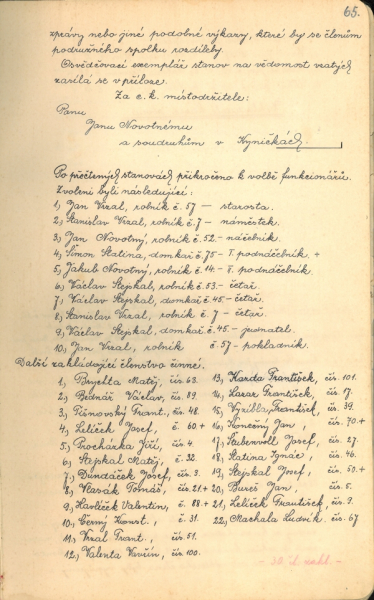 65.
zprávy nebo jiné podobné výkazy, které by se členům
podružného spolku rozdílely.
Osvědčovací exemplář stanov na vědomost vzatých
zasílá se v příloze.
Za c. k. místodržitele:
Panu
Janu Novotnému
a soudruhům v Kyničkách.
Po přečtených stanovách přikročeno k volbě funkcionářů.
Zvoleni byli následující:
1, Jan Vrzal, rolník č. 57 – starosta.
2, Stanislav Vrzal, rolník č. 7 – náměstek.
3, Jan Novotný, rolník č. 52. – náčelník.
4, Šimon Slatina, domkař č. 75 – I. podnáčelník. +
5, Jakub Novotný, rolník č. 14. – II. podnáčelník.
6, Václav Stejskal, rolník č. 53. – četař.
7, Václav Stejskal, domkař č. 45 – četař.
8, Stanislav Vrzal, rolník č. 7. – četař.
9, Václav Stejskal, domkař č. 45. – jednatel.
10, Jan Vrzal, rolník č. 57 – pokladník.
Další zakládající členstvo činné:
1, Bryclta Matěj, čís. 63.
2, Bednář Václav, čís. 89.
3, Frant., čís. 48.
4, Lelíček Josef, č. 60. +
5, Procházka Jiří, č. 4.
6, Stejskal Matěj, č. 32.
7, Dundáček Josef, čís. 3.
8, Vlasák Tomáš, čís. 21 +
9, Havlíček Valentin, č. 88. +
10, Černý Konst., č. 31.
11, Vrzal Frant., čís. 51.
12, Valenta čís. 100.
13, Karda František, čís. 101.
14, Lazar František, čís. 17.
15, Vyzibla František, čís. 39.
16, Konečný Jan, čís. 70. +
17, Josef, čís. 27.
18, Slatina Ignác, čís. 46.
19, Stejskal Josef, čís. 50. +
20, Bureš Jan, čís. 5.
21, Lelíček František, čís. 9.
22, Machala Ludvík, čís. 67